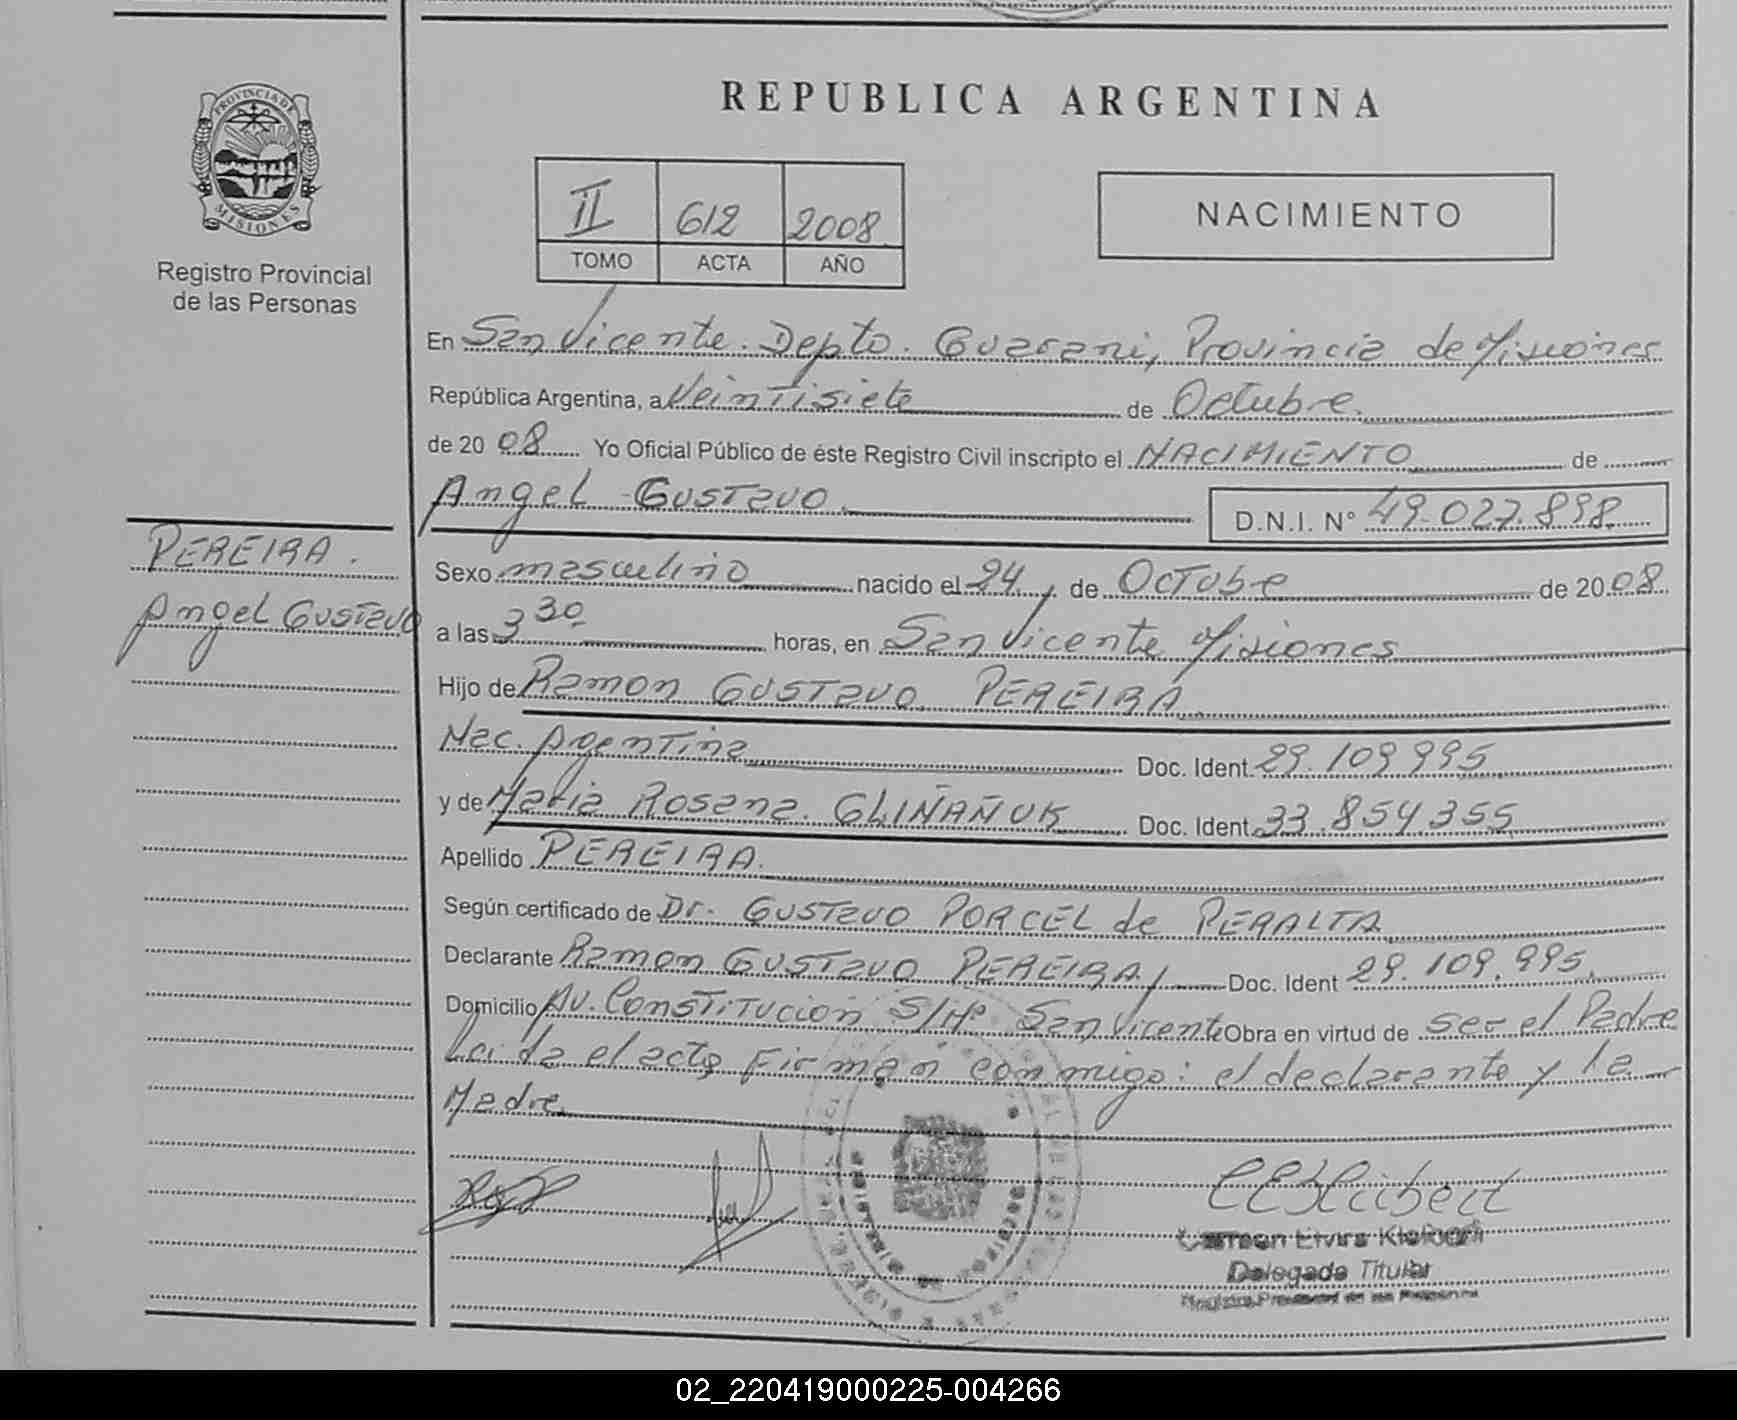 REPUBLICA ARGENTINA
PROVINCIA DE
MISIONES
Registro Provincial
de las Personas
II 612 2008
TOMO ACTA AÑO
NACIMIENTO
En San Vicente. Depto. Guarani, Provincia de Misiones
República Argentina, a Veintisiete de Octubre.
de 20 08 Yo Oficial Público de éste Registro Civil inscripto el NACIMIENTO de
Angel Gustavo
D.N.I. N° 49.027.898
PEREIRA.
Angel Gustavo
Sexo masculino nacido el 24 de Octubre de 20 08
a las 3 30 horas, en San Vicente Misiones
Hijo de Ramon Gustavo PEREIRA
Nac. Argentina Doc. Ident. 29.109 995
y de Maria Rosana. GLIÑAÑUK Doc. Ident. 33.854.355
Apellido PEREIRA.
Según certificado de Dr. Gustavo PORCEL de PERALTA
Declarante Ramon Gustavo PEREIRA Doc. Ident 29.109.995
Domicilio Av. Constitucion S/Nº San Vicente Obra en virtud de ser el Padre
Leida el acta Firman conmigo: el declarante y la
Madre
Carmen Elvira
Delegada Titular
02_220419000225-004266